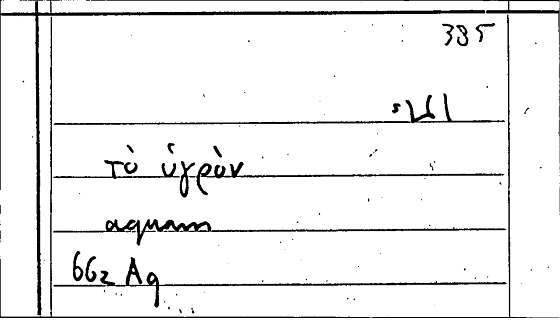 385
τὸ ὑγρὸν
aquam
662 Aq